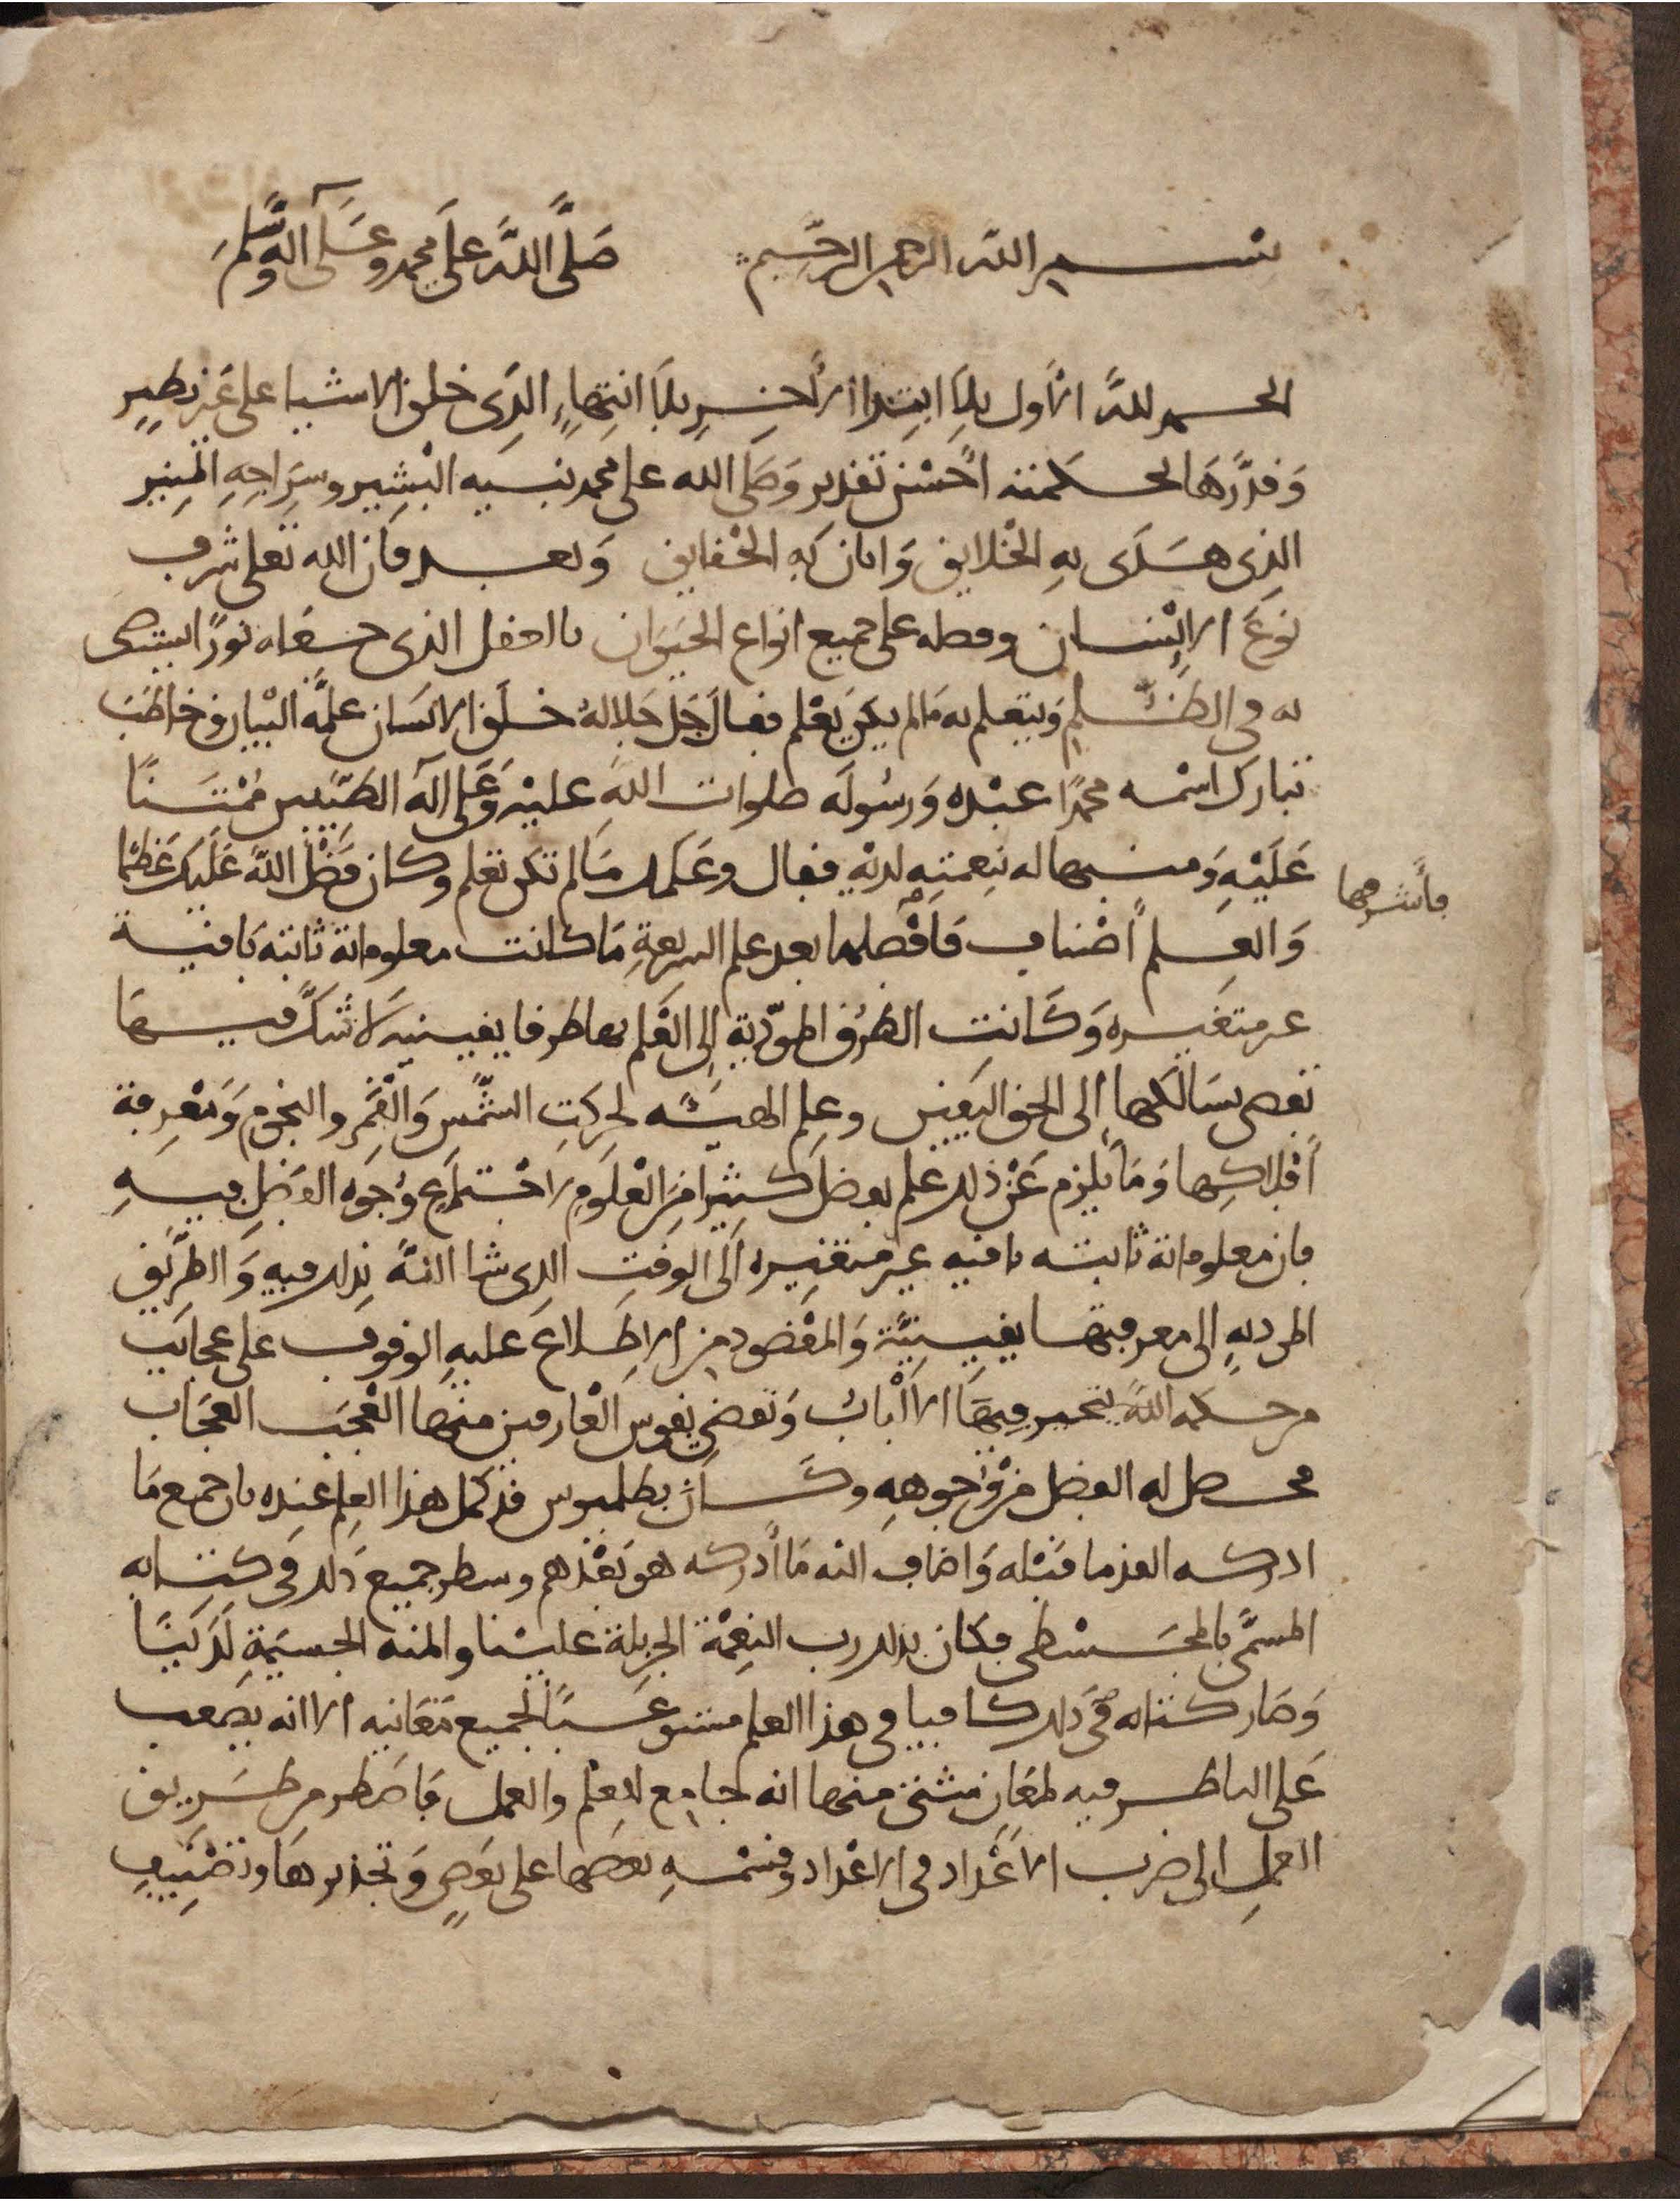 بسم الله الرحمن الرحيم صلى الله على محمد وعلى اله وسلم
الحمد لله الاول بلا ابتدا الاخر بلا انتهاء الذى خلق الاشيا على غير نظير
وقدرها بحكمته احسن تقدير وصلى الله على محمد نبيه البشير وسراجه المنير
الذى هدى به الخلايق وابان به الحقايق وبعد فان الله تعلى شرف
نوع الانسان وفضله على جميع انواع الحيوان بالعقل الذى جعله نورا يستضى
به فى الظلم ويتعلم به ما لم يكن يعلم فقال جل جلاله خلق الانسان علمه البيان وخاطب
تبارك اسمه محمدا عبده ورسوله صلوات الله عليه وعلى اله الطيبين ممتنا
عليه ومنبها له بنعمته لديه فقال وعلمك ما لم تكن تعلم وكان فضل الله عليك عظيما
والعلم اصناف فافضلها بعد علم الشريعة ما كانت معلوماته ثابتة باقية
فأشرفها
غير متغيره وكانت الطرق المؤدية الى العلم بها طرقا يقينيه لا شك فيها
تفضى بسالكها الى الحق اليقين وعلم الهيئه لحركت الشمس والقمر والنجوم ومعرفة
افلاكها وما يلزم عن ذلك علم يفضل كثيرا من العلوم لاجتماع وجوه الفضل فيه
فان معلوماته ثابته باقيه غير متغيره الى الوقت الذى شا الله بذلك فيه والطريق
المرديه الى معرفتها يقينية والمقصود من الاطلاع عليه الوقوف على عجايب
من حكمه الله يتحير فيها الالباب وتقضى نفوس العارفين منها العجب العجاب
فحصل له الفضل من وجوهه وكان بطلميوس قد كمل هذا العلم عنده بان جميع ما
ادركه القدما قبله واضاف اليه ما أدركه هو بعدهم وسطر جميع ذلك فى كتابه
المسمى بالمجسطى فكان بذلك رب النعمة الجزيلة علينا والمنه الجسيمة لدينا
وصار كتابه فى ذلك كافيا فى هذا العلم مستوعبا لجميع معانيه الا انه يصعب
على الناظر فيه لمعان شتى منها انه جامع للعلم والعمل فاضطر من طريق
العمل الى ضرب الاعداد فى الاعداد وقسمه بعضها على بعض وتجذيرها وتضعيف